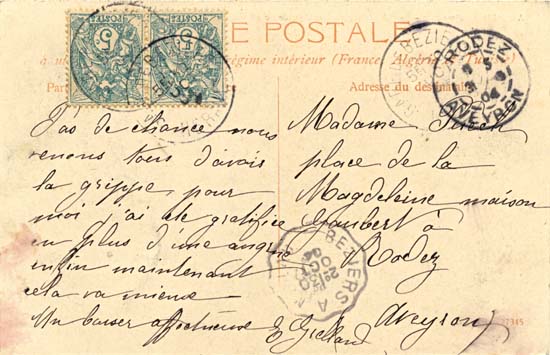 POSTALE
5 POSTES 5 POSTES
régime intérieur (France, Algérie
Adresse du
RODEZ
AVEYRON
BEZIERS
Pas de chance nous
venons tous d'avoir
la grippe, pour
moi j'ai été gratifiée
en plus d'une angine
enfin maintenant
cela va mieux
Un baiser affectueux
Madame
place de la
Magdeleine maison
Joubert à
Rodez
Aveyron